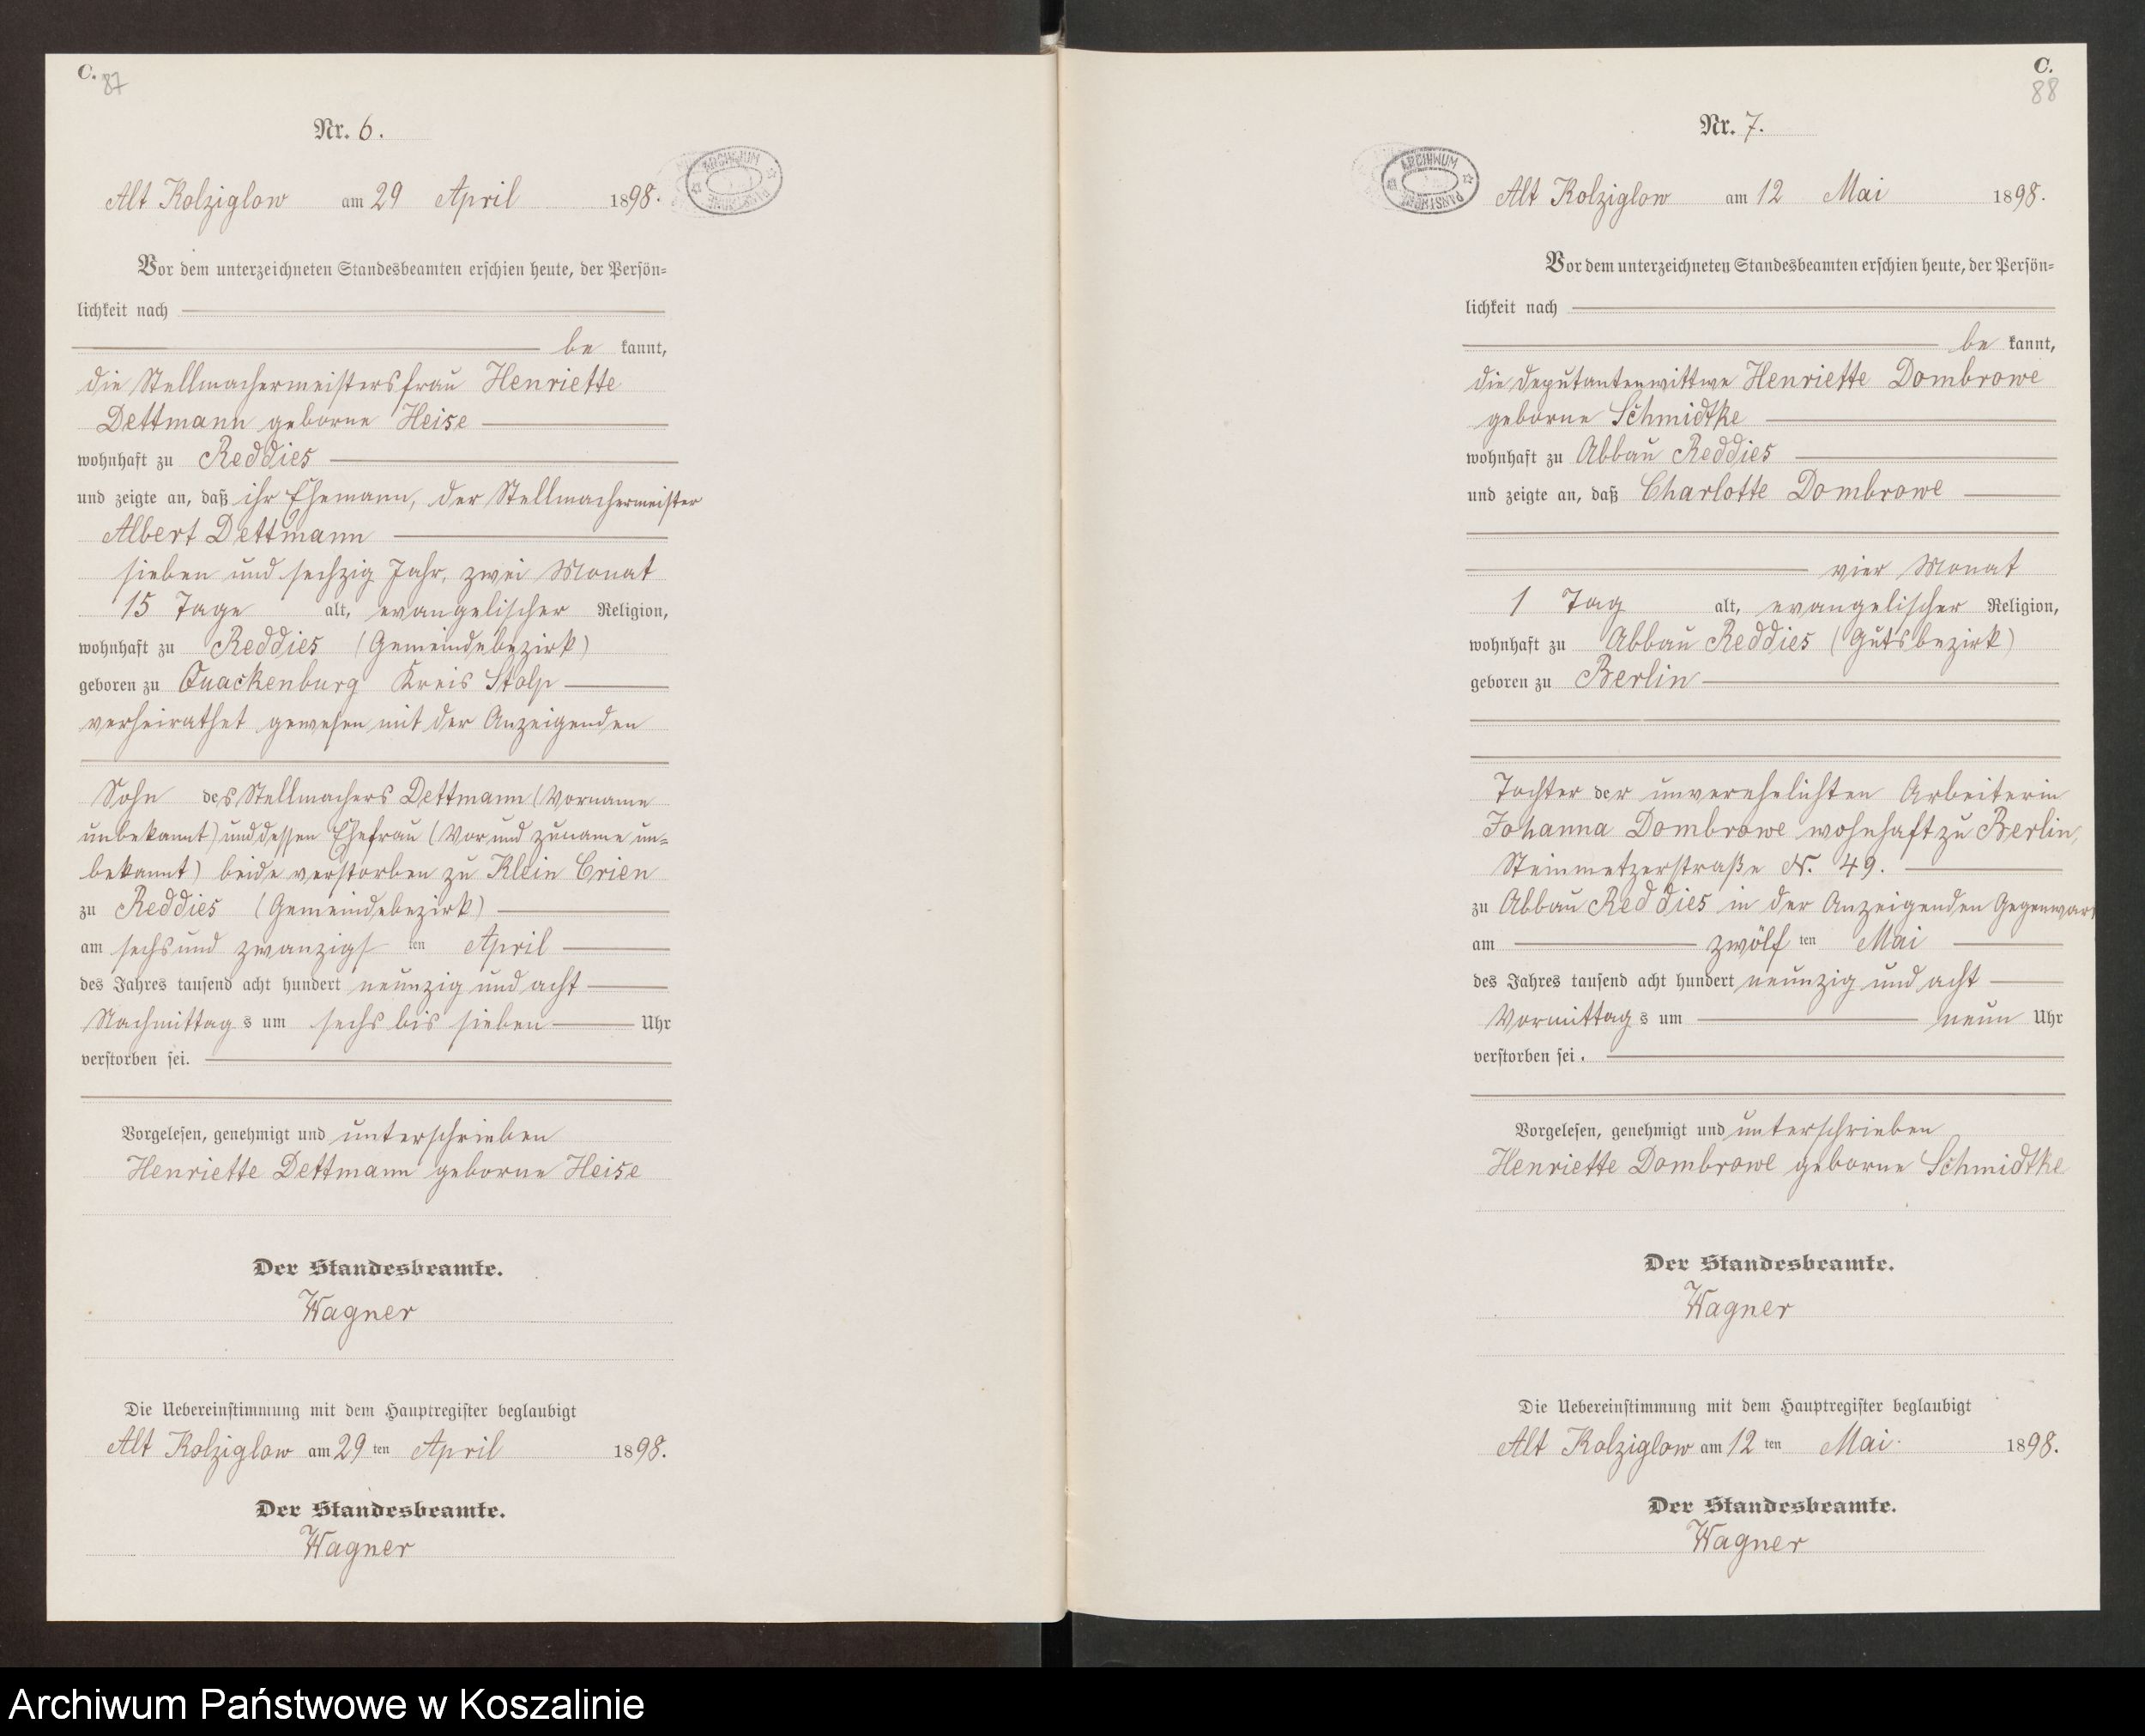 C.
87
Nr. 6.
Alt Kolziglow am 29 April 1898.
Vor dem unterzeichneten Standesbeamten erschien heute, der Persön-
lichkeit nach
be kannt,
die Stellmachermeistersfrau Henriette
Dettmann geborne Heise
wohnhaft zu Reddies
und zeigte an, daß ihr Ehemann, der Stellmachermeister
Albert Dettmann
sieben und sechzig Jahr, zwei Monat
15 Tage alt, evangelischer Religion,
wohnhaft zu Reddies (Gemeindebezirk)
geboren zu Quackenburg Kreis Stolp
verheirathet gewesen mit der Anzeigenden
Sohn des Stellmachers Dettmann (Vorname
unbekannt) und dessen Ehefrau (Vor und Zuname un-
bekannt) beide verstorben zu Klein Crien
zu Reddies (Gemeindebezirk)
am sechs und zwanzigs ten April
des Jahres tausend acht hundert neunzig und acht
Nachmittag s um sechs bis sieben Uhr
verstorben sei.
Vorgelesen, genehmigt und unterschrieben
Henriette Dettmann geborne Heise
Der Standesbeamte.
Wagner
Die Uebereinstimmung mit dem Hauptregister beglaubigt
Alt Kolziglow am 29 ten April 1898.
Der Standesbeamte.
Wagner
C.
88
Nr. 7.
ARCHIWUM
Alt Kolziglow am 12 Mai 1898.
Vor dem unterzeichneten Standesbeamten erschien heute, der Persön-
lichkeit nach
be kannt,
die Deputantenwittwe Henriette Dombrowe
geborne Schmidtke
wohnhaft zu Abbau Reddies
und zeigte an, daß Charlotte Dombrowe
vier Monat
1 Tag alt, evangelischer Religion,
wohnhaft zu Abbau Reddies (Gutsbezirk)
geboren zu Berlin
Tochter der unverehelichten Arbeiterin
Johanna Dombrowe wohnhaft zu Berlin,
Steinmetzerstraße N. 49.
zu Abbau Reddies in der Anzeigenden Gegenwart
am zwölf ten Mai
des Jahres tausend acht hundert neunzig und acht
Vormittag s um neun Uhr
verstorben sei.
Vorgelesen, genehmigt und unterschrieben
Henriette Dombrowe geborne Schmidtke
Der Standesbeamte.
Wagner
Die Uebereinstimmung mit dem Hauptregister beglaubigt
Alt Kolziglow am 12 ten Mai 1898.
Der Standesbeamte.
Wagner
Archiwum Państwowe w Koszalinie